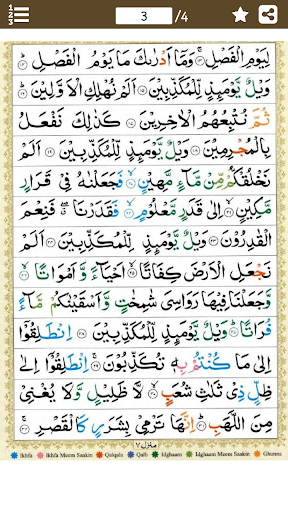 3 /4
لِيَوْمِ الْفَصْلِ ۚ ﴿١٣﴾ وَمَآ اَدْرٰىكَ مَا يَوْمُ الْفَصْلِ ؕ ﴿١٤﴾
وَيْلٌ يَّوْمَئِذٍ لِّلْمُكَذِّبِيْنَ ﴿١٥﴾ اَلَمْ نُهْلِكِ الْاَوَّلِيْنَ ؕ ﴿١٦﴾
ثُمَّ نُتْبِعُهُمُ الْاٰخِرِيْنَ ﴿١٧﴾ كَذٰلِكَ نَفْعَلُ
بِالْمُجْرِمِيْنَ ﴿١٨﴾ وَيْلٌ يَّوْمَئِذٍ لِّلْمُكَذِّبِيْنَ ﴿١٩﴾ اَلَمْ
نَخْلُقْكُّمْ مِّنْ مَّآءٍ مَّهِيْنٍ ۙ ﴿٢٠﴾ فَجَعَلْنٰهُ فِيْ قَرَارٍ
مَّكِيْنٍ ۙ ﴿٢١﴾ اِلٰى قَدَرٍ مَّعْلُوْمٍ ۙ ﴿٢٢﴾ فَقَدَرْنَا ۖ فَنِعْمَ
الْقٰدِرُوْنَ ﴿٢٣﴾ وَيْلٌ يَّوْمَئِذٍ لِّلْمُكَذِّبِيْنَ ﴿٢٤﴾ اَلَمْ
نَجْعَلِ الْاَرْضَ كِفَاتًا ۙ ﴿٢٥﴾ اَحْيَآءً وَّ اَمْوَاتًا ۙ ﴿٢٦﴾
وَّجَعَلْنَا فِيْهَا رَوَاسِيَ شٰمِخٰتٍ وَّاَسْقَيْنٰكُمْ مَّآءً
فُرَاتًا ؕ ﴿٢٧﴾ وَيْلٌ يَّوْمَئِذٍ لِّلْمُكَذِّبِيْنَ ﴿٢٨﴾ اِنْطَلِقُوْۤا
اِلٰى مَا كُنْتُمْ بِهٖ تُكَذِّبُوْنَ ۚ ﴿٢٩﴾ اِنْطَلِقُوْۤا اِلٰى
ظِلٍّ ذِيْ ثَلٰثِ شُعَبٍ ۙ ﴿٣٠﴾ لَّا ظَلِيْلٍ وَّلَا يُغْنِيْ
مِنَ اللَّهَبِ ؕ ﴿٣١﴾ اِنَّهَا تَرْمِيْ بِشَرَرٍ كَالْقَصْرِ ۚ ﴿٣٢﴾
منزل ٧
Ikhfa Ikhfa Meem Saakin Qalqala Qalb Idghaam Idghaam Meem Saakin Ghunna